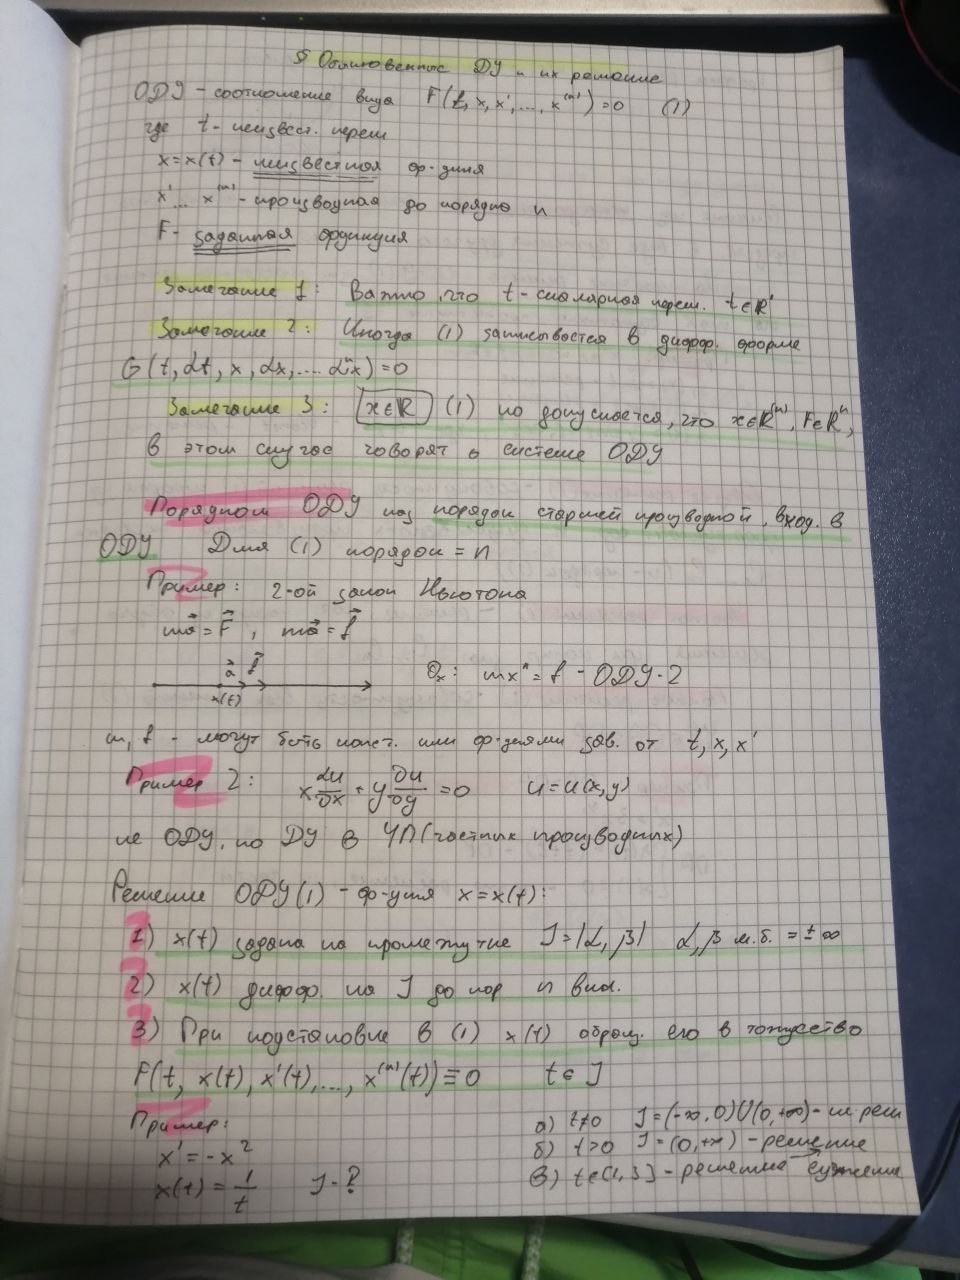 § Обыкновенные ДУ и их решение
ОДУ - соотношение вида F(t, x, x', ..., x⁽ⁿ⁾) = 0 (1)
где t - неизвест. перем
x = x(t) - неизвестная ф-ция
x' ... x⁽ⁿ⁾ - производная до порядка n
F - заданная функция
Замечание 1: Важно, что t - скалярная перем. t ∈ R¹
Замечание 2: Иногда (1) записывается в дифф. форме
G(t, dt, x, dx, .... dⁿx) = 0
Замечание 3: x ∈ R (1) но допускается, что x ∈ R⁽ⁿ⁾, F ∈ Rⁿ,
в этом случае говорят о системе ОДУ
Порядком ОДУ наз порядок старшей производной, вход. в
ОДУ Для (1) порядок = n
Пример: 2-ой закон Ньютона
ma⃗ = F⃗, ma⃗ = f⃗
a⃗ f⃗
x(t)
Ox: mx'' = f - ОДУ-2
m, f - могут быть конст. или ф-циями зав. от t, x, x'
Пример 2: x ∂u/∂x + y ∂u/∂y = 0 u = u(x, y)
не ОДУ, но ДУ в ЧП (частных производных)
Решение ОДУ (1) - ф-ция x = x(t):
1) x(t) задана на промежутке J = |α, β| α, β м.б. = ± ∞
2) x(t) дифф. на J до пор n вкл.
3) При подстановке в (1) x(t) обращ. его в тождество
F(t, x(t), x'(t), ..., x⁽ⁿ⁾(t)) ≡ 0 t ∈ J
Пример:
x' = -x²
x(t) = 1/t J - ?
а) t ≠ 0 J = (-∞, 0) U (0, +∞) - не реш
б) t > 0 J = (0, +∞) - решение
в) t ∈ (1, 3] - решение → сужение